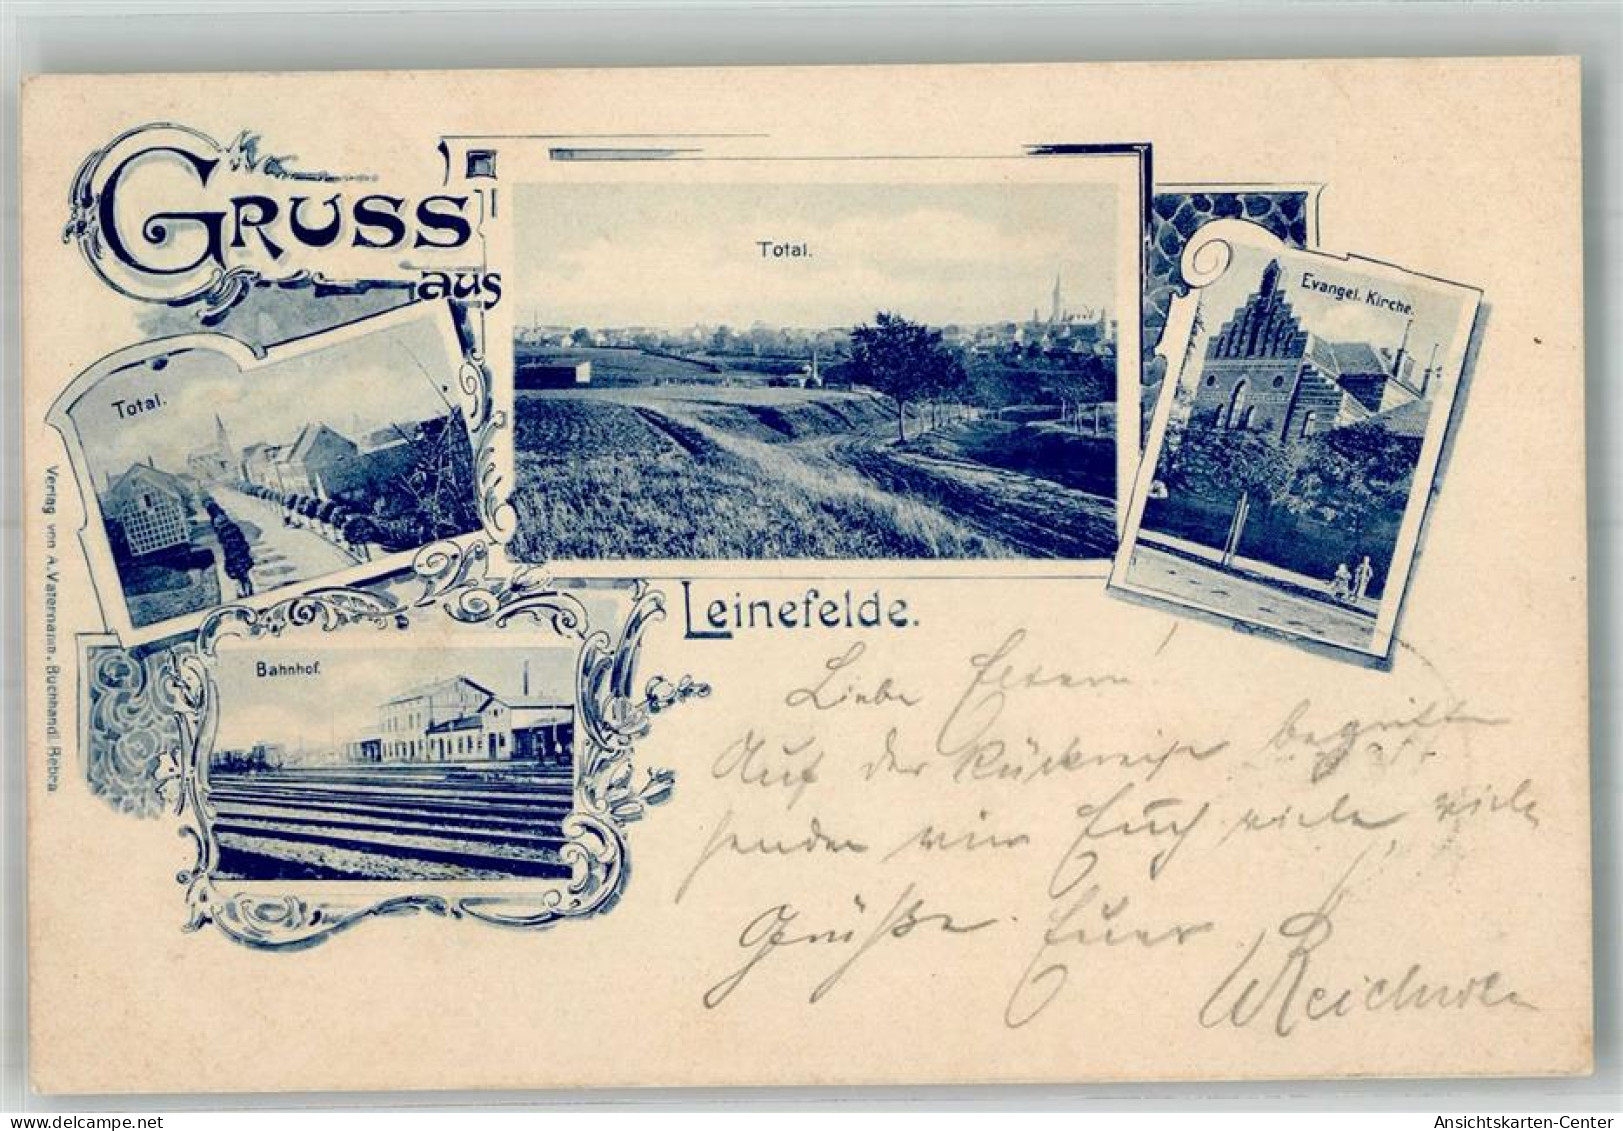 GRUSS
aus
Total.
Total.
Evangel. Kirche.
Bahnhof.
Leinefelde.
Verlag von A. Vaternahm, Buchhandl. Bebra.
Liebe Eltern!
Auf der Rückreise begriffen
senden wir Euch viele, viele
Grüße. Euer
Ansichtskarten-Center